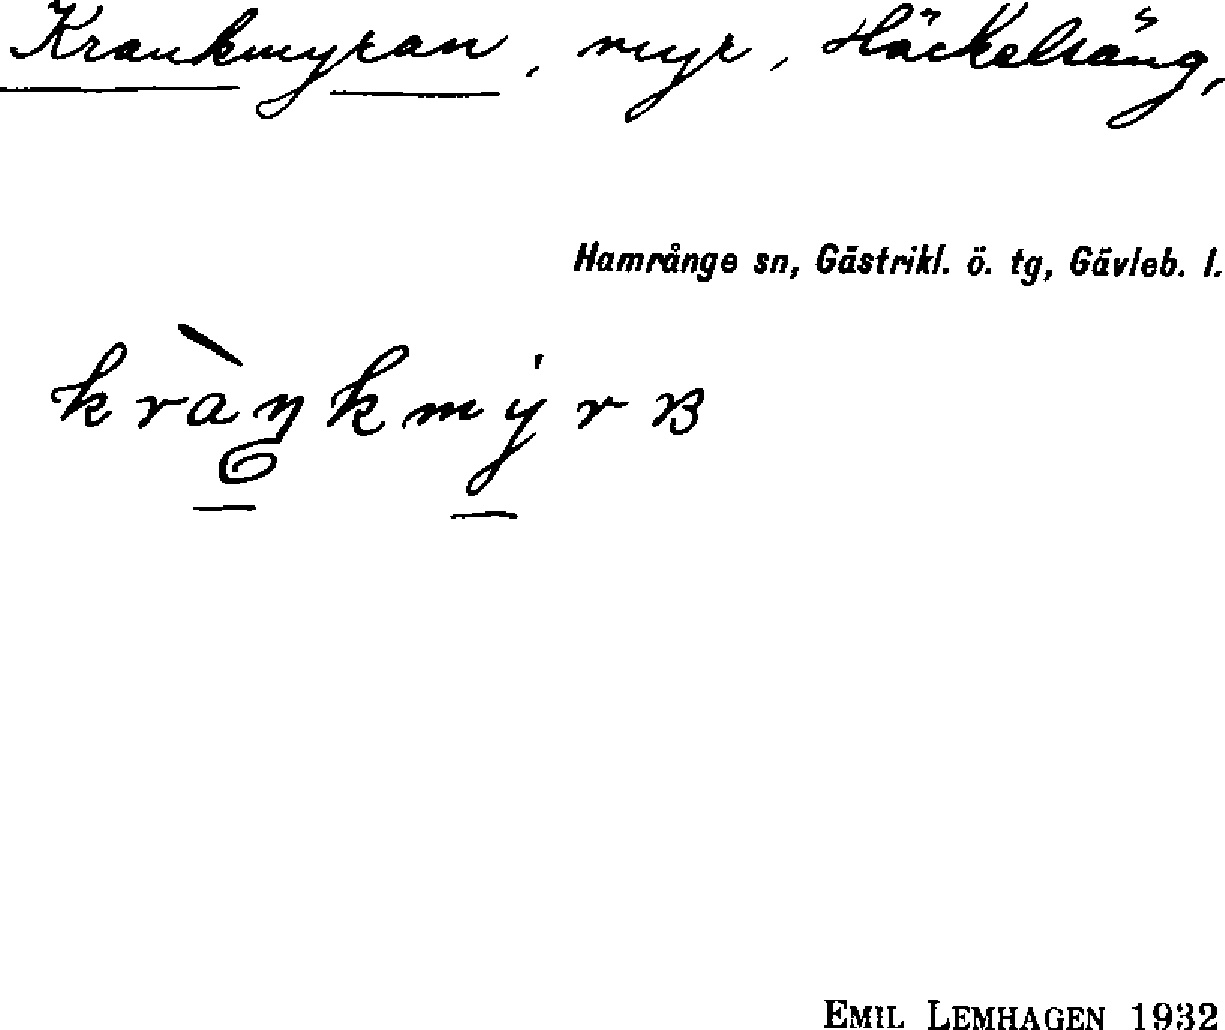 Krankmyran, myr, Häckelsäng,
Hamrånge sn, Gästrikl. ö. tg, Gävleb. l.
kràŋkmýrɐ
EMIL LEMHAGEN 1932